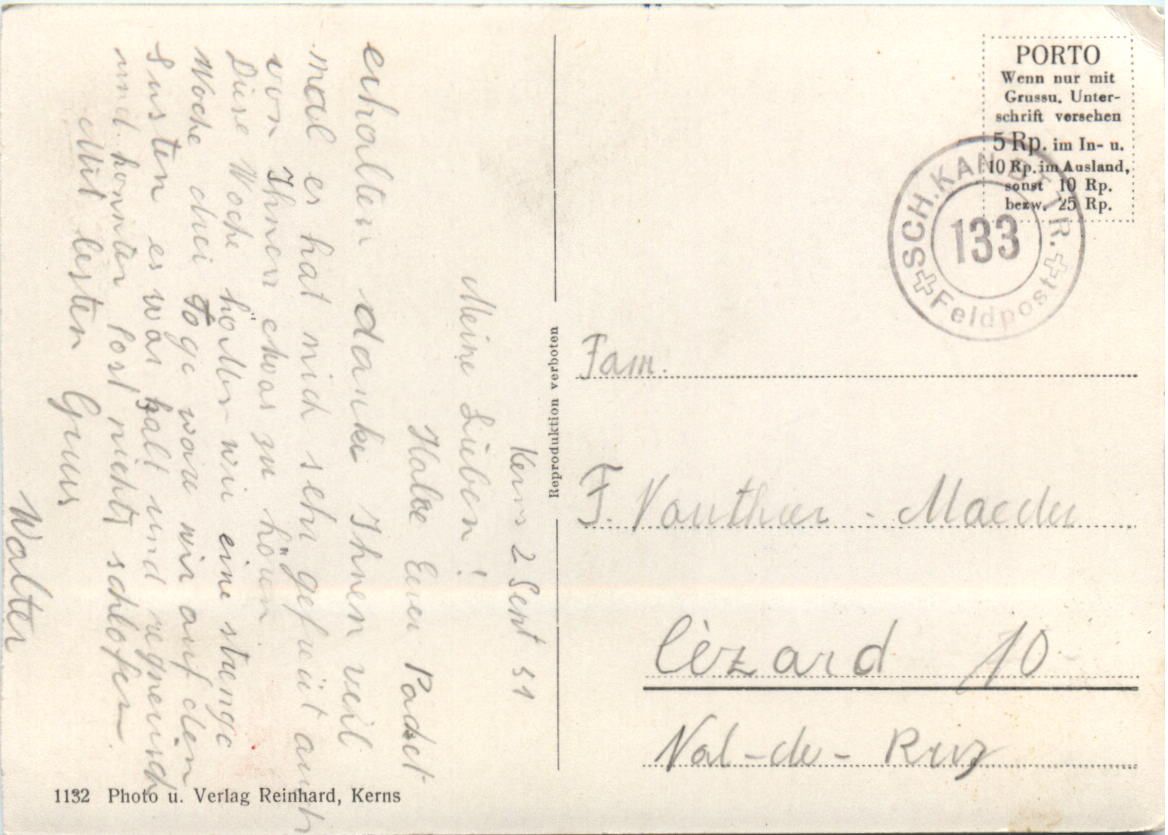 Kerns 2 Sept 51
Meine Lieben!
Habe Euer Packet
erhalten danke Ihnen viel
mal es hat mich sehr gefreut auch
von Ihnen etwas zu hören
Diese Woche hatten wir eine strenge
Woche drei Tage ware wir auf den
Susten es war kalt und regnerisch
und konnten fost nichts schlofen.
Mit besten Gruss
Walter
1132 Photo u. Verlag Reinhard, Kerns
Reproduktion verboten
PORTO
Wenn nur mit
Grussu. Unter-
schrift versehen
5 Rp. im In- u.
10 Rp. im Ausland,
sonst 10 Rp.
bezw. 25 Rp.
SCH.KAN.BTTR.
133
Feldpost
Fam.
F. Vauthier - Maeder
Cèzard 10
Val-de-Ruz